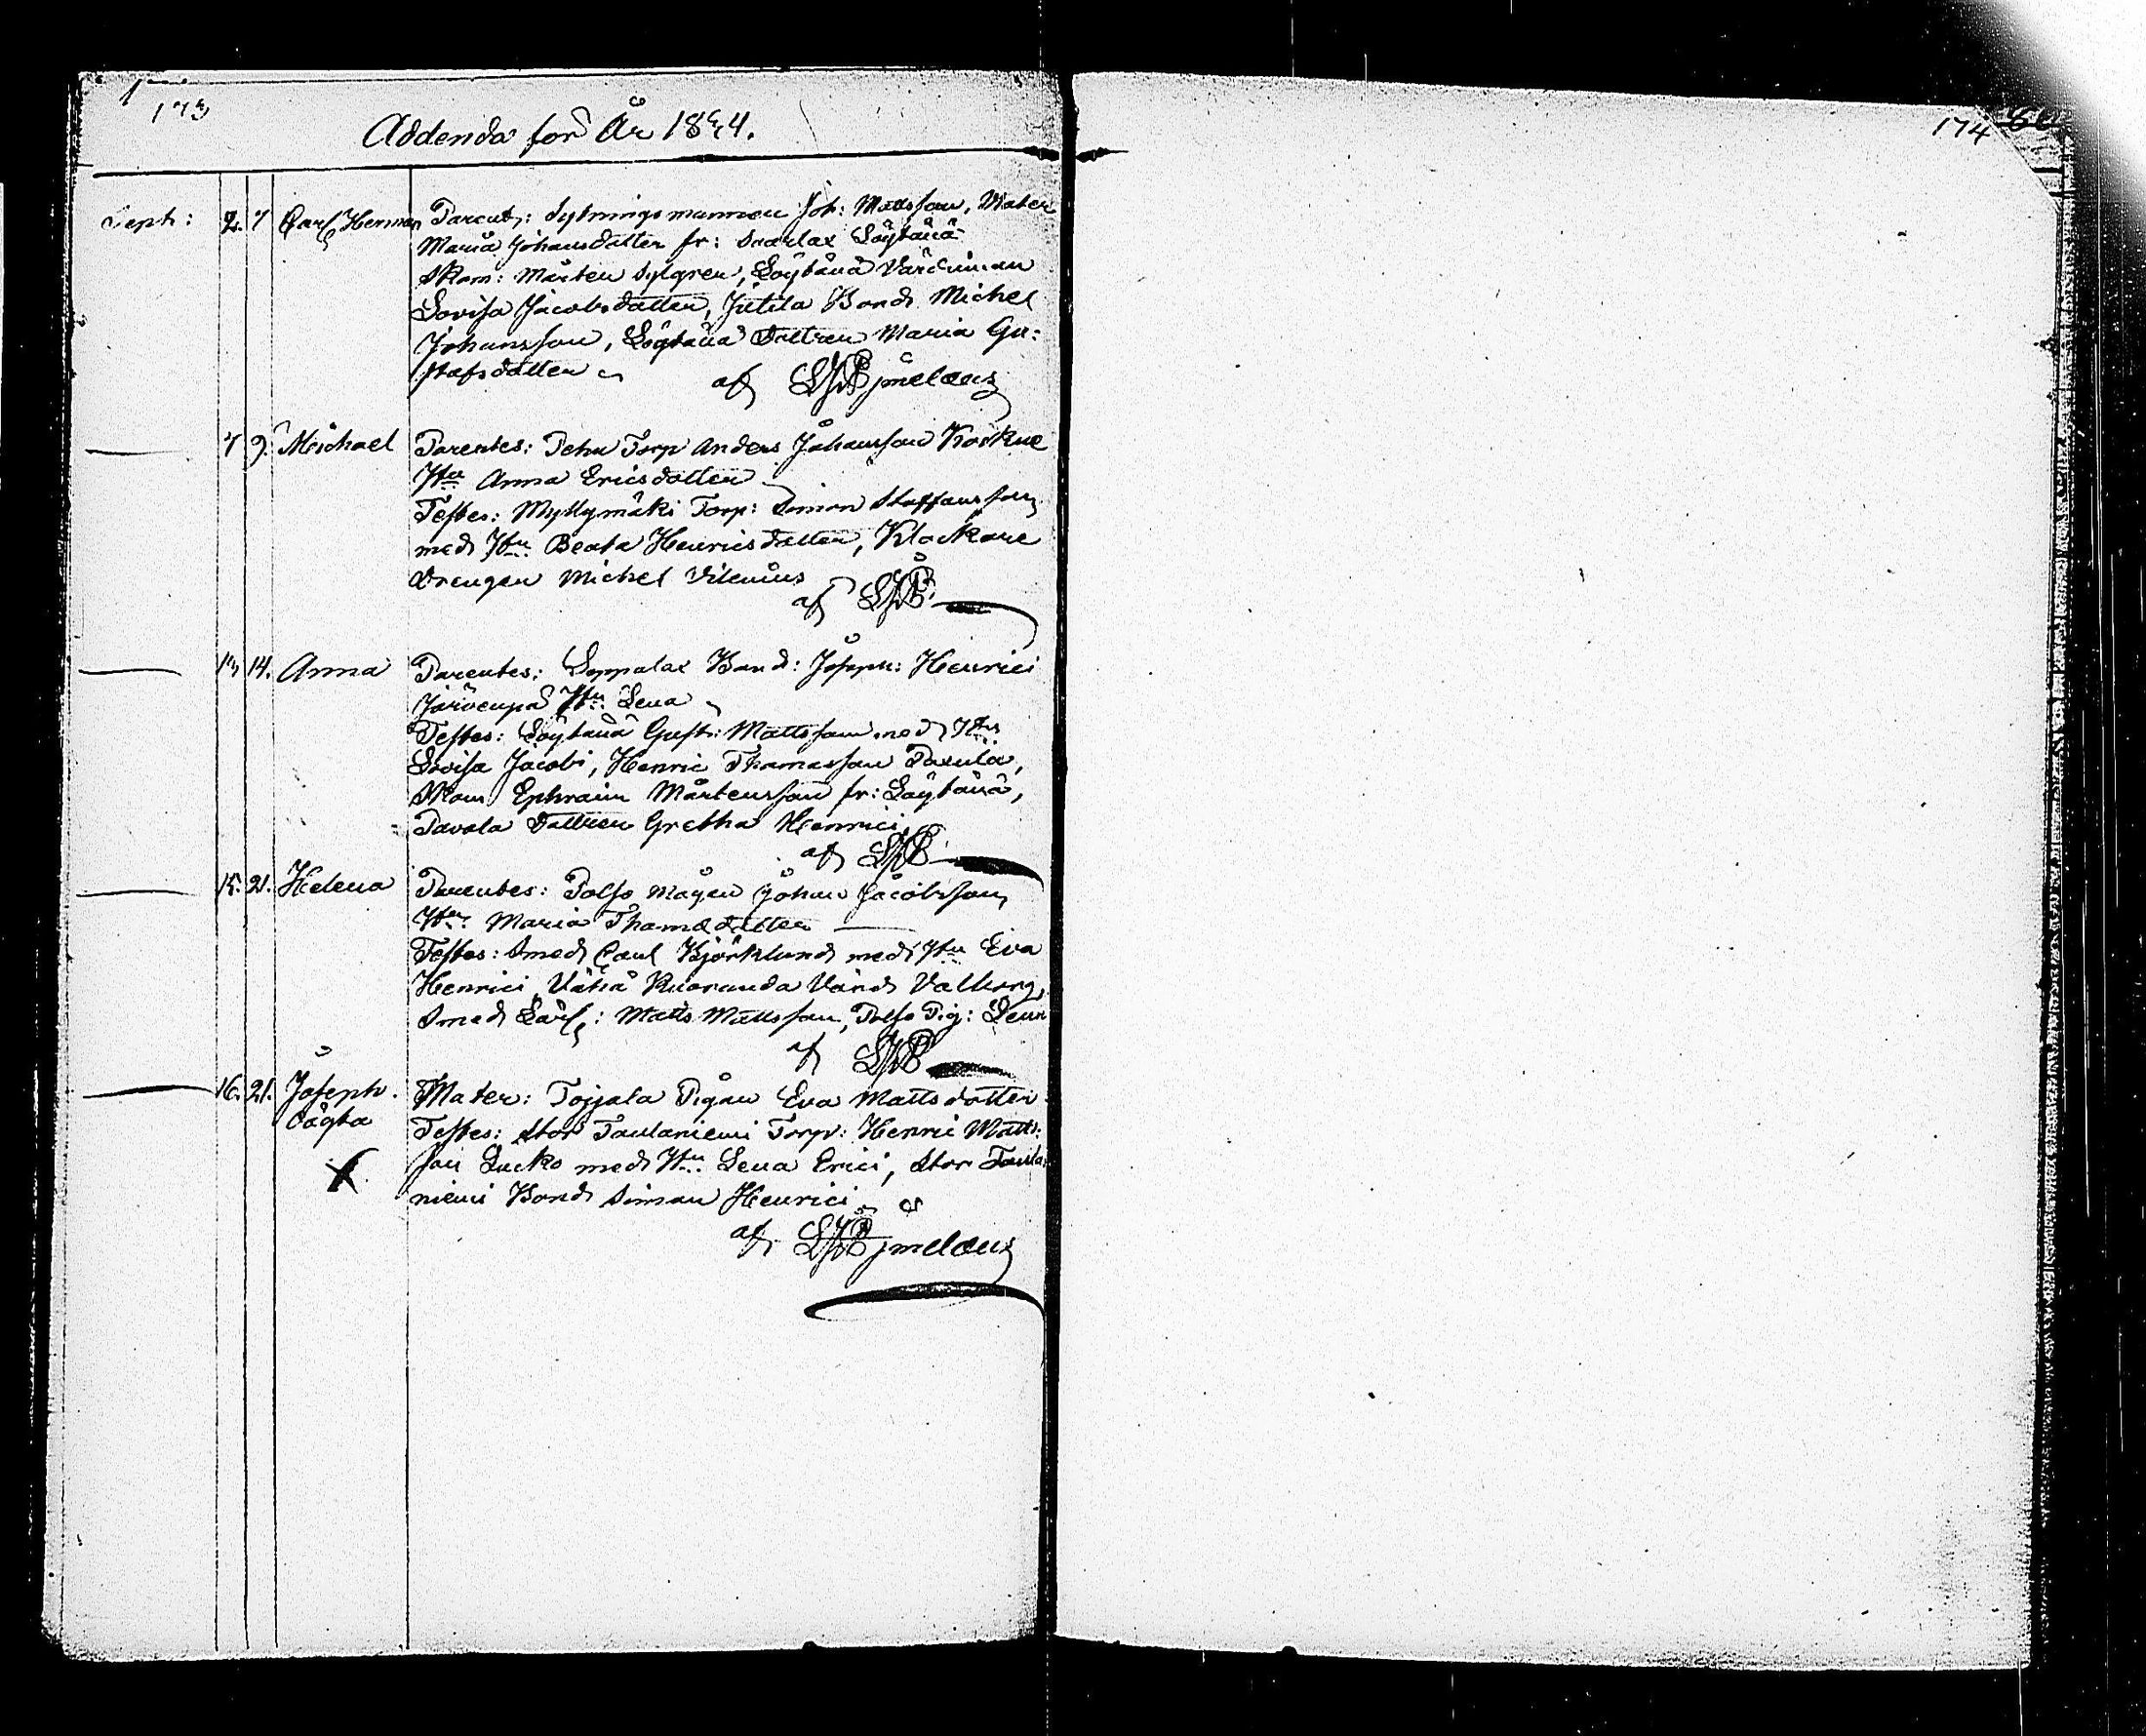 173
174
Addenda for År 1824.
Septr: 2. 7 Carl Herman Parent: Sytningsmannen Joh: Mattsson, Mater
Maria Johansdotter fr: Svarlax Löytänä
Skom: Mårten Sylgren, Löytänä
Lovisa Jacobsdotter, Jutila Bond Michel
Johansson, Löytänä Dottren Maria Gu-
stafsdotter
af
7 9. Michael Parentes: Torp Anders Johansson
Hu Anna Ericsdotter
Testes: Myllymäki Torp: Simon Staffansson
med Hu Beata Henricsdotter, Klockare
Drengen Michel Vilenius
af
13 14. Anna Parentes: Seppälax Bond: Joseph: Henrici
Hu: Lena
Testes: Löytänä Gust: Mattsson med Hu
Lovisa Jacobi, Henric Thomasson
Skom Ephraim Mårtensson fr: Löytänä,
Pavola Dottren Gretha Henrici.
af
15. 21. Helena Parentes: Polso Mågen Johan Jacobsson
Hu: Maria Thomædotter
Testes: Smed Carl Björklund med Hu Eva
Henrici, Vähä
Smed Lärl: Matts Mattsson, Polso Pig: Lena
af
16. 21. Joseph. Mater: Tojjala Pigan Eva Mattsdotter
oägta Testes: Stor Taulaniemi Torp: Henric Matts:
son Lucko med Hu: Lena Erici, Stor Taula
niemi Bond Simon Henrici
af